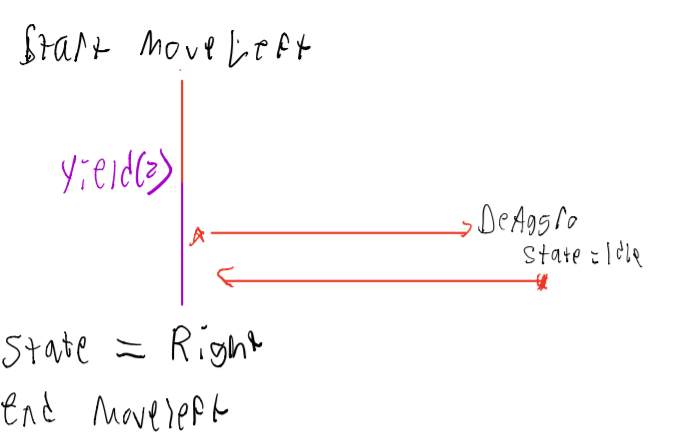 Start MoveLeft
Yield(2)
DeAggro
State = Idle
State = Right
End Moveleft